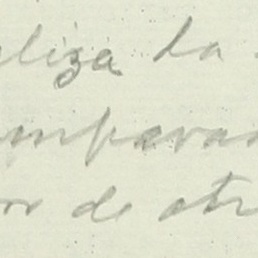 eliza da
mparava
or de otr